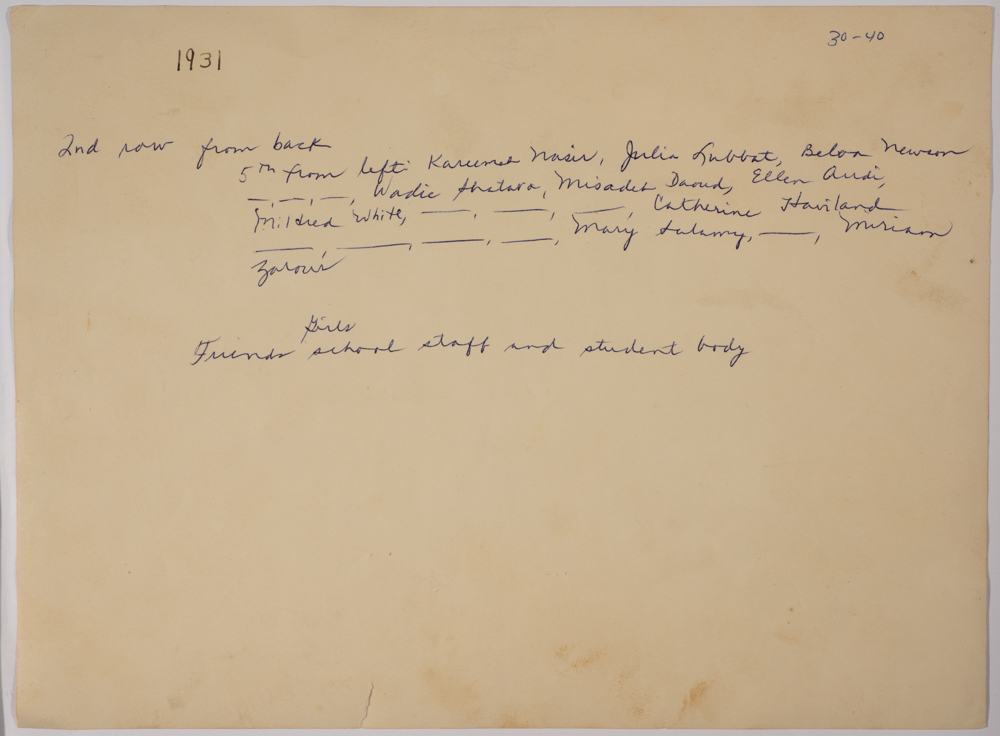 1931
30-40
2nd row from back
5th from left: Kareemeh Nasir, Julia Lubbat, Belva Newsom
—, —, —, Wadie Shatara, Misadeh Daoud, Ellen Audi,
Mildred White, —, —, —, Catherine Haviland
—, —, —, —, Mary Salamy, —, Miriam
Zarour
Girls
Friends school staff and student body